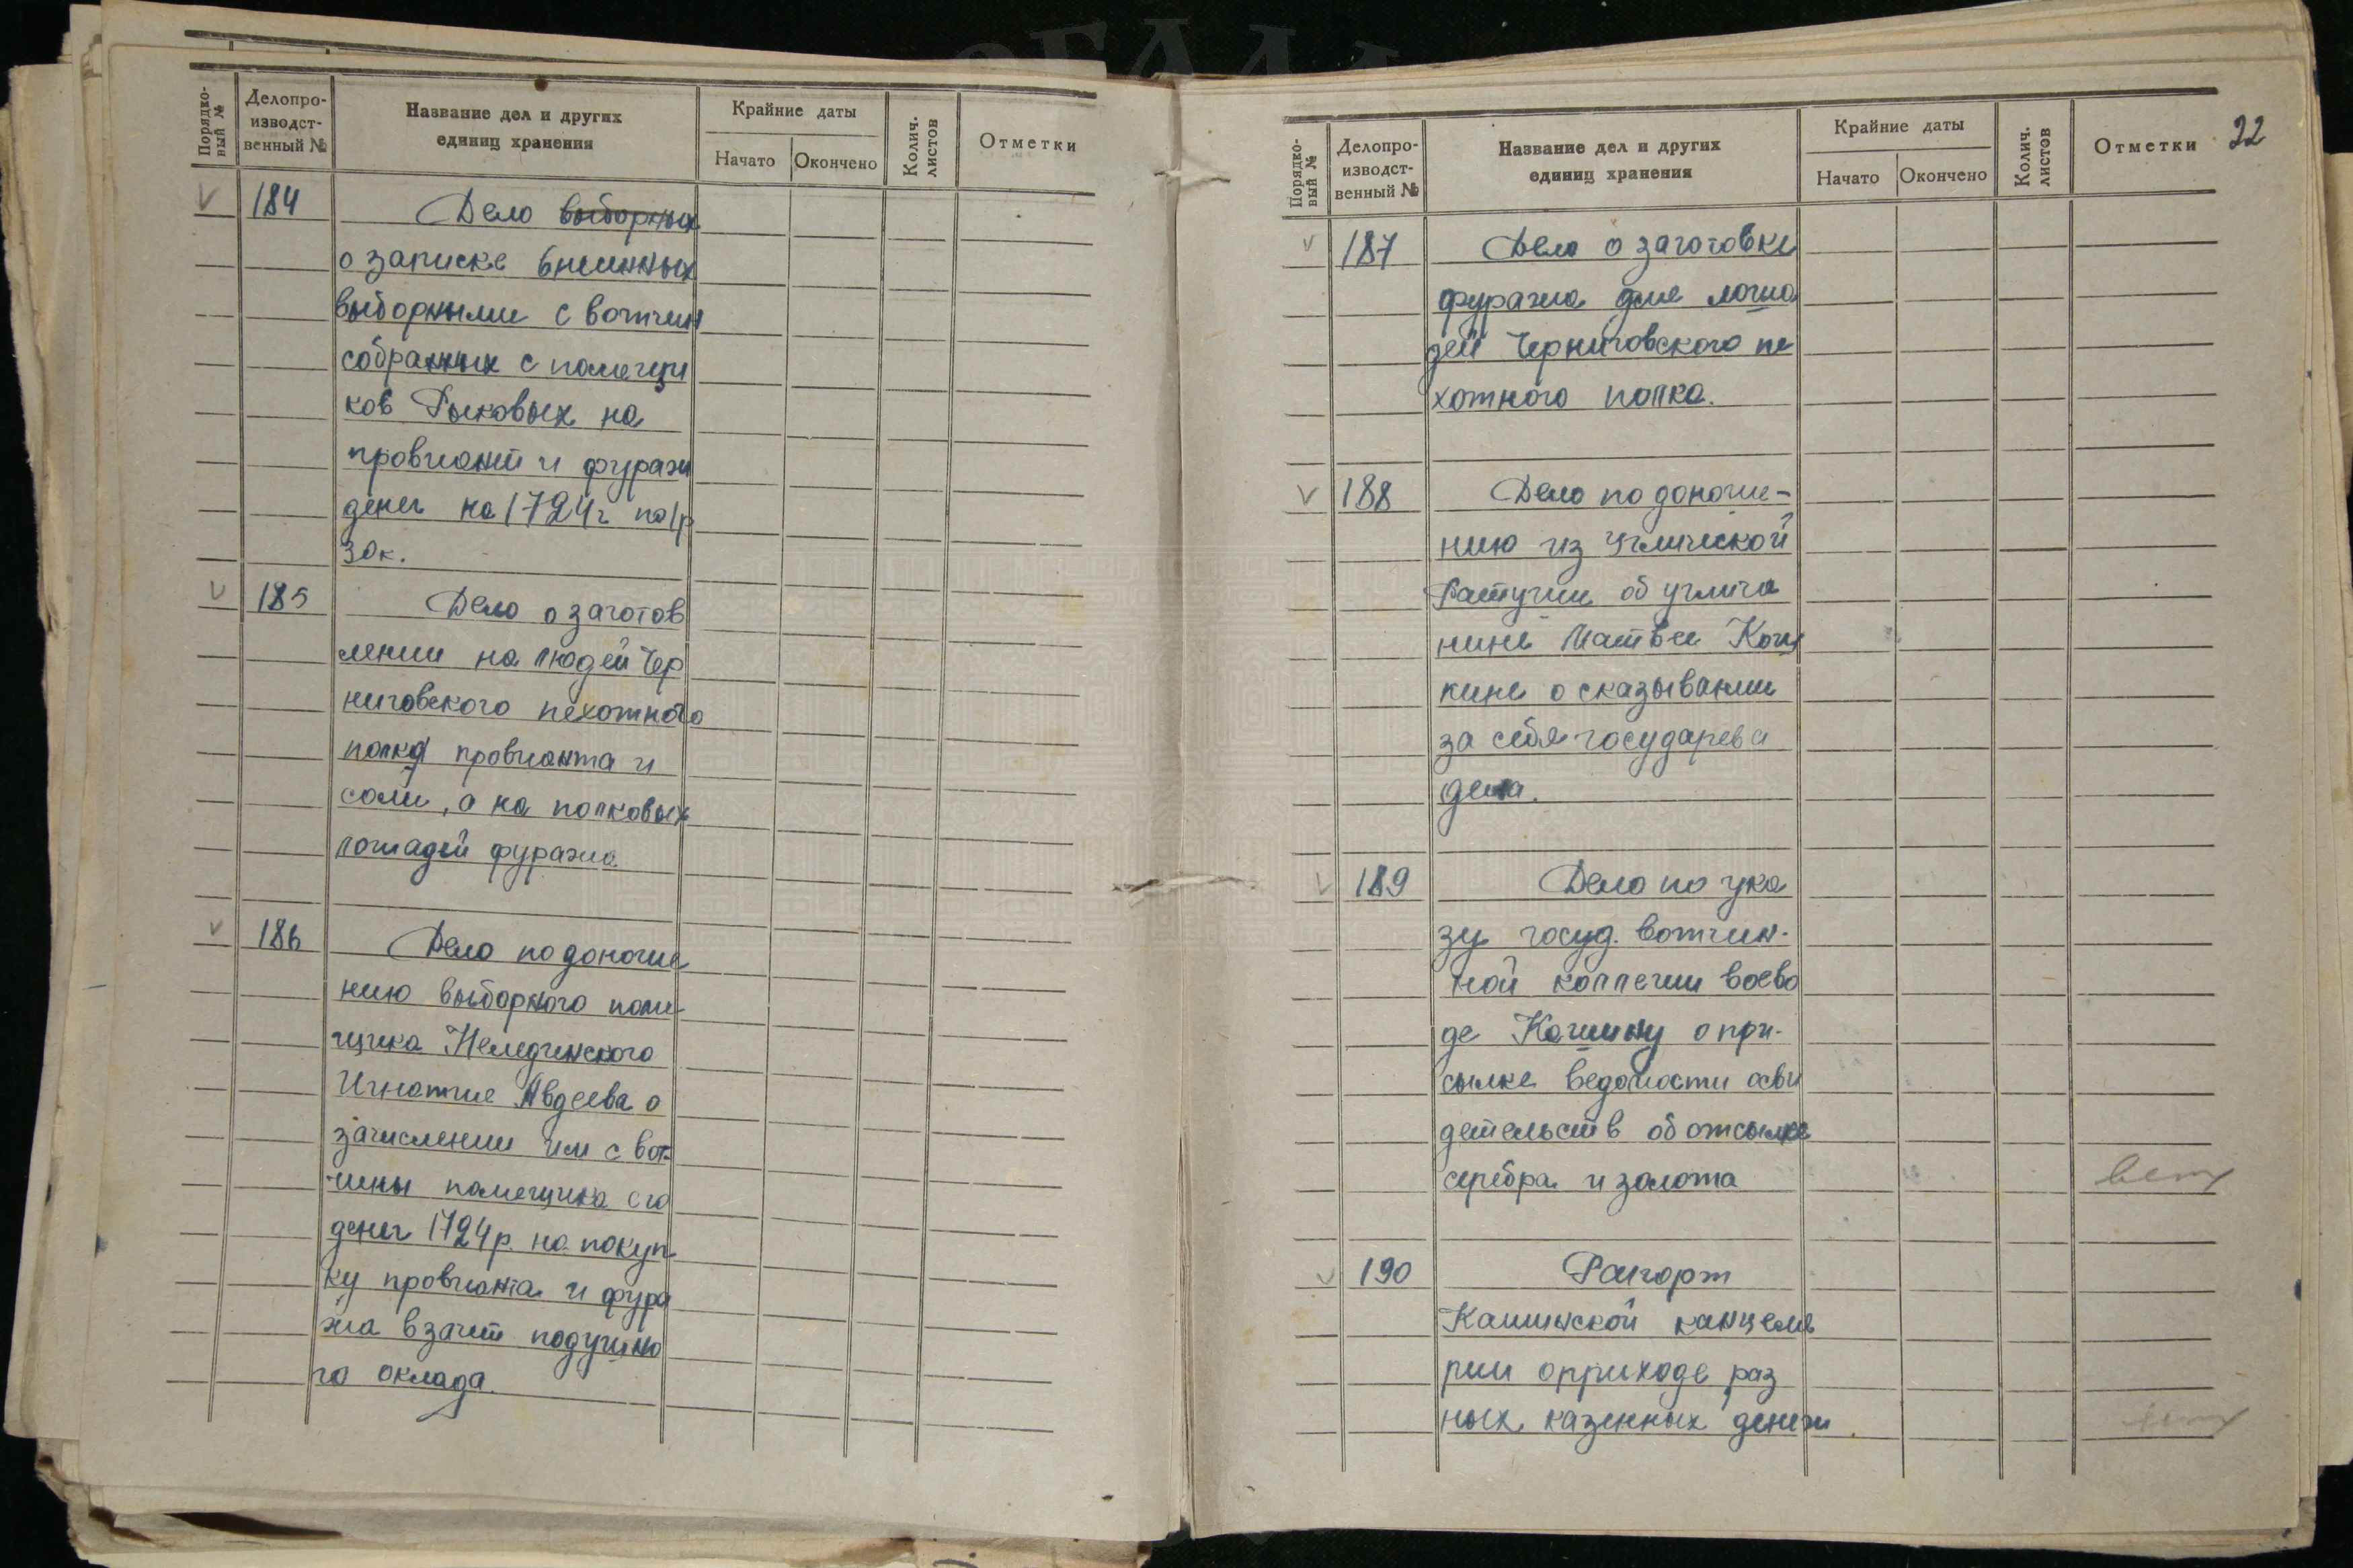 Порядко-
вый №
Делопро-
изводст-
венный №
Название дел и других
единиц хранения
Крайние даты
Начато
Окончено
Колич.
листов
Отметки
V 184 Дело выборных
о записке
выборными с вотчин
собранных с помещи
ков Рыковых на
провиант и фураж
денег на 1724 г
30к.
V 185 Дело о заготов
лении на людей Чер
ниговского пехотного
полка провианта и
соли, а на полковых
лошадей фуража
V 186 Дело по доноше
нию выборного поме
щика Нелединского
Игнатия Авдеева о
зачислении им с вот
чины помещика его
денег 1724 р. на покуп
ку провианта и фура
жа взачет подушно
го оклада.
Порядко-
вый №
Делопро-
изводст-
венный №
Название дел и других
единиц хранения
Крайние даты
Начато
Окончено
Колич.
листов
Отметки
22
V 187 Дело о заготовке
фуража для лоша
дей Черниговского пе
хотного полка.
V 188 Дело по доноше-
нию из Угличской
Ратуши об углича
нине Матвее
о сказывании
за себя государева
дела.
V 189 Дело по ука
зу госуд. вотчин-
ной коллегии воево
де Кашину о при-
сылке ведомости осви
детельств об отсылке
серебра и золота
ветх
V 190 Рапорт
Кашинской канцеля
рии оприходе раз
ных казенных денежн
ветх